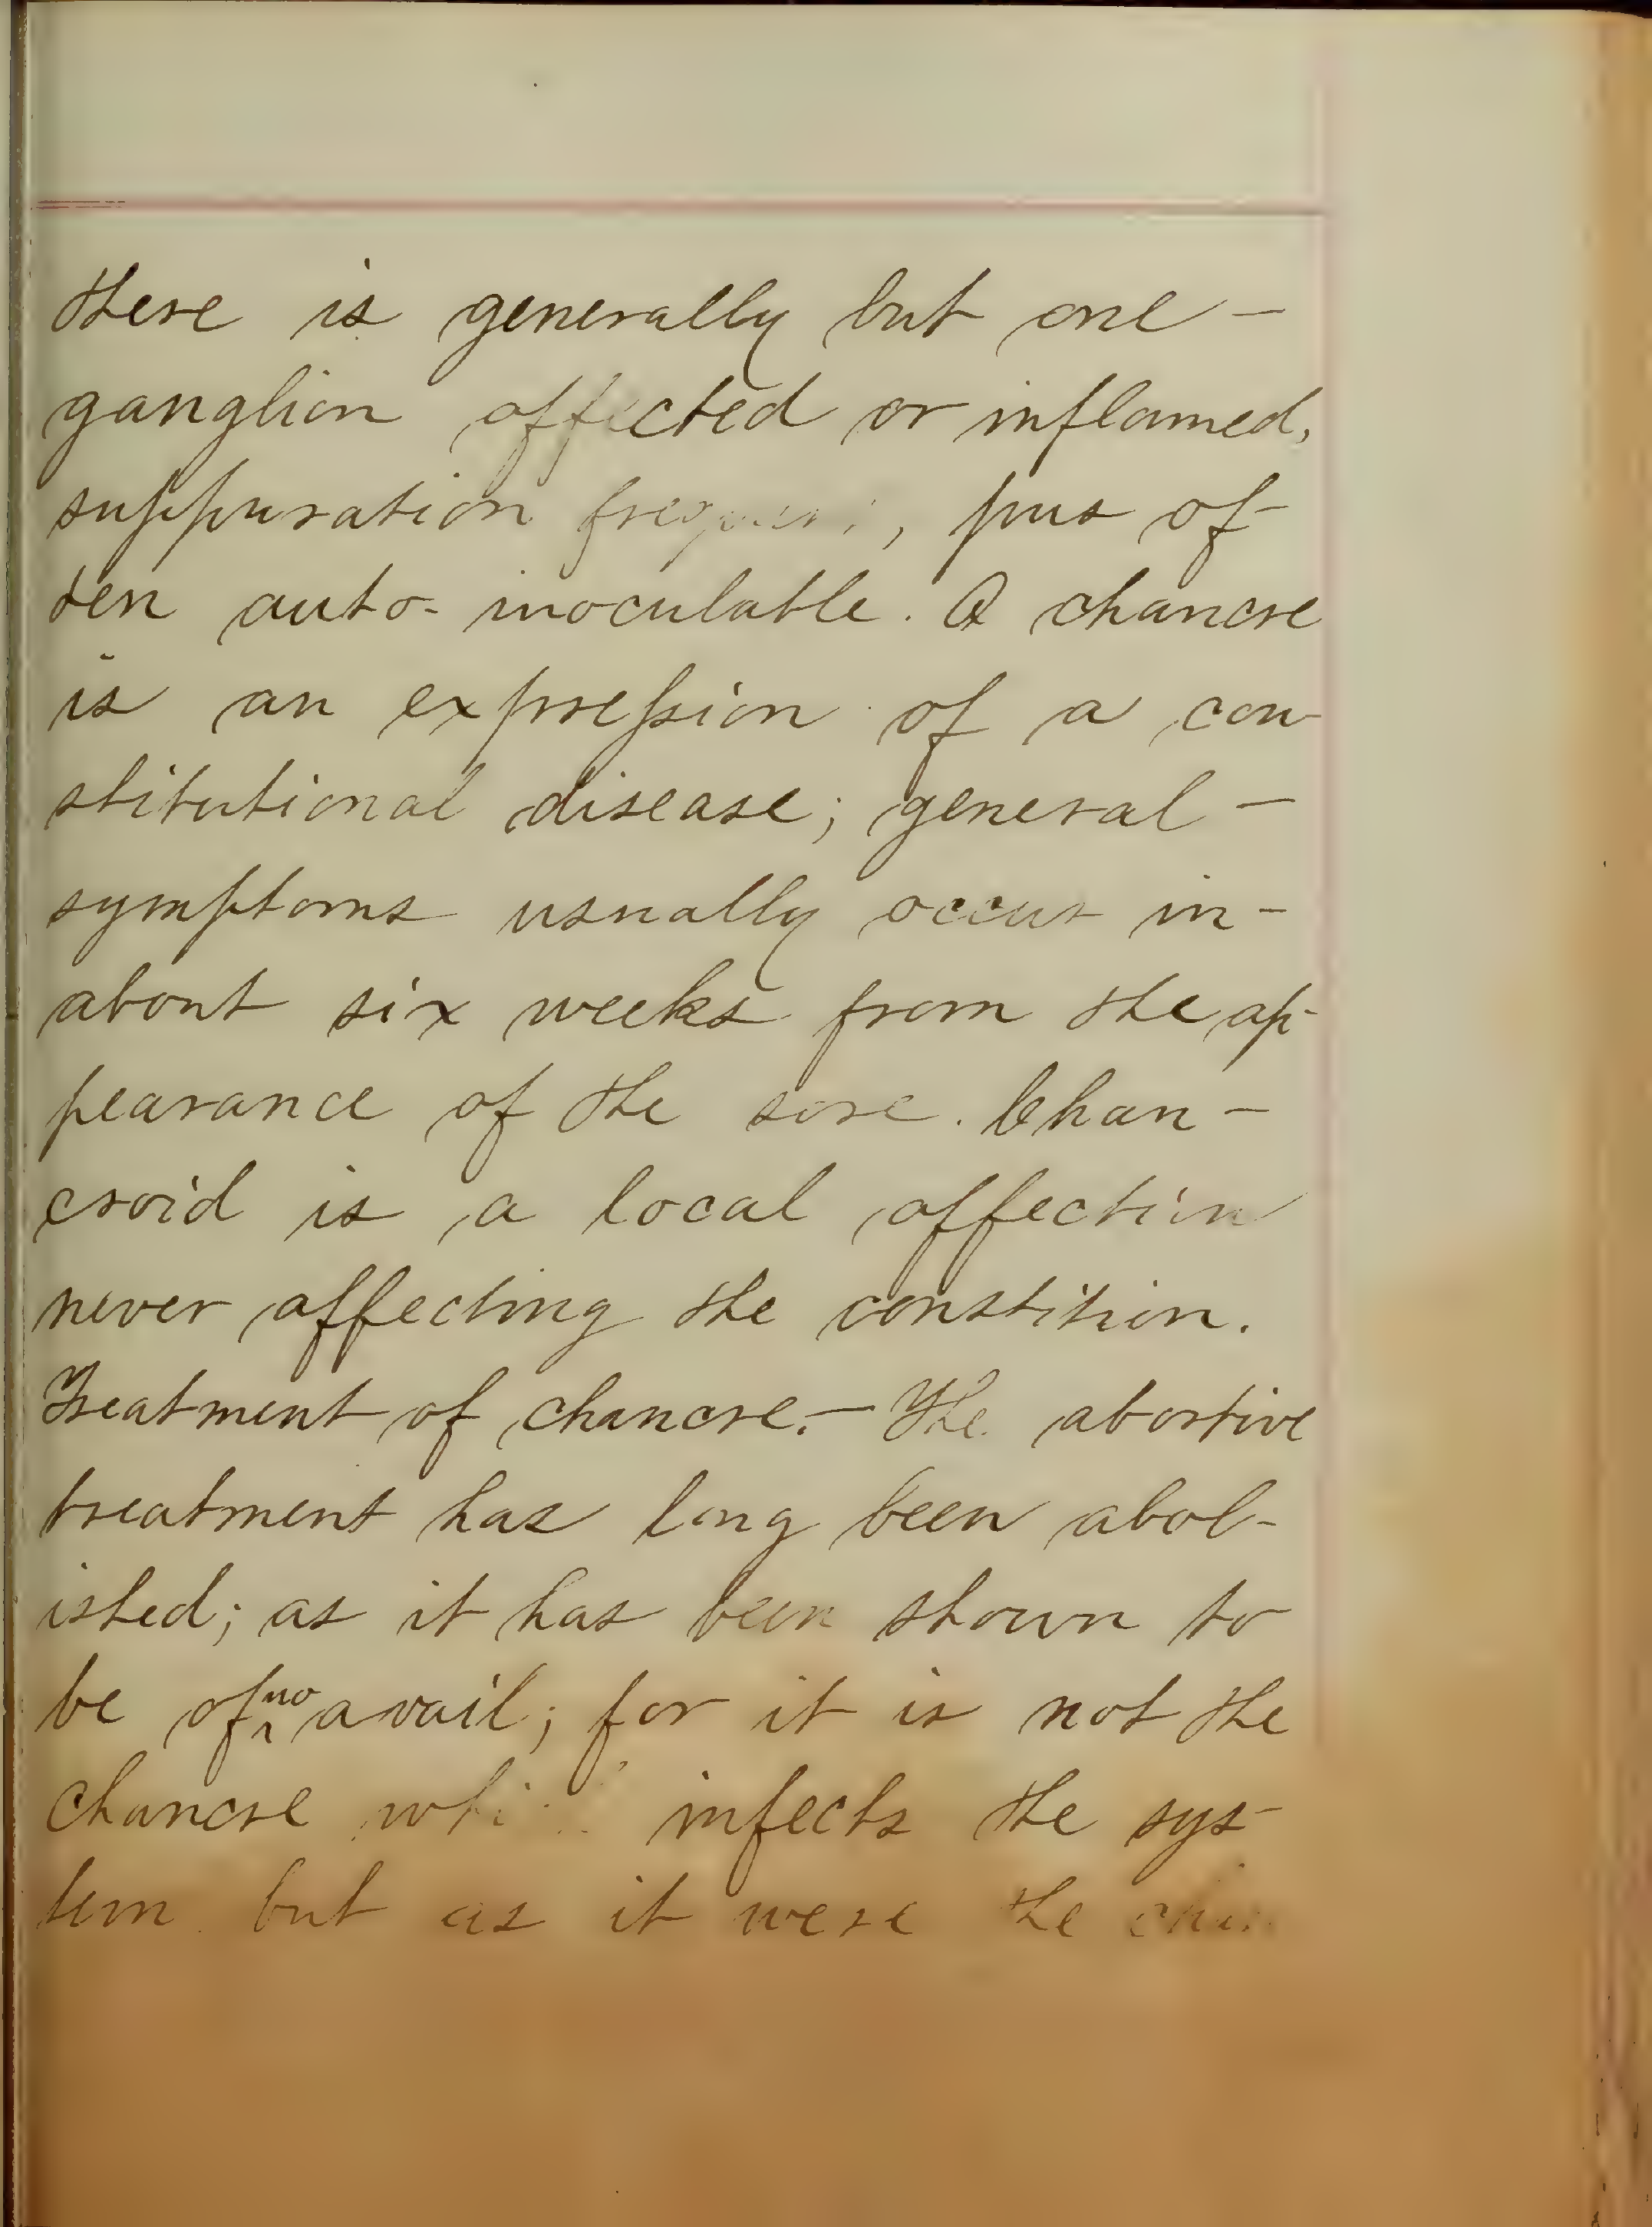 there is generally but one —
ganglion affected or inflamed,
suppuration frequent, pus of-
ten auto-inoculable. A chancre
is an expression of a con-
stitutional disease; general —
symptoms usually occur in -
about six weeks from the ap-
pearance of the sore. Chan -
croid is a local affection
never affecting the constition.
Treatment of chancre. — The abortive
treatment has long been abol-
ished; as it has been shown to
be of no avail; for it is not the
chancre infects the sys-
tem but as it were the